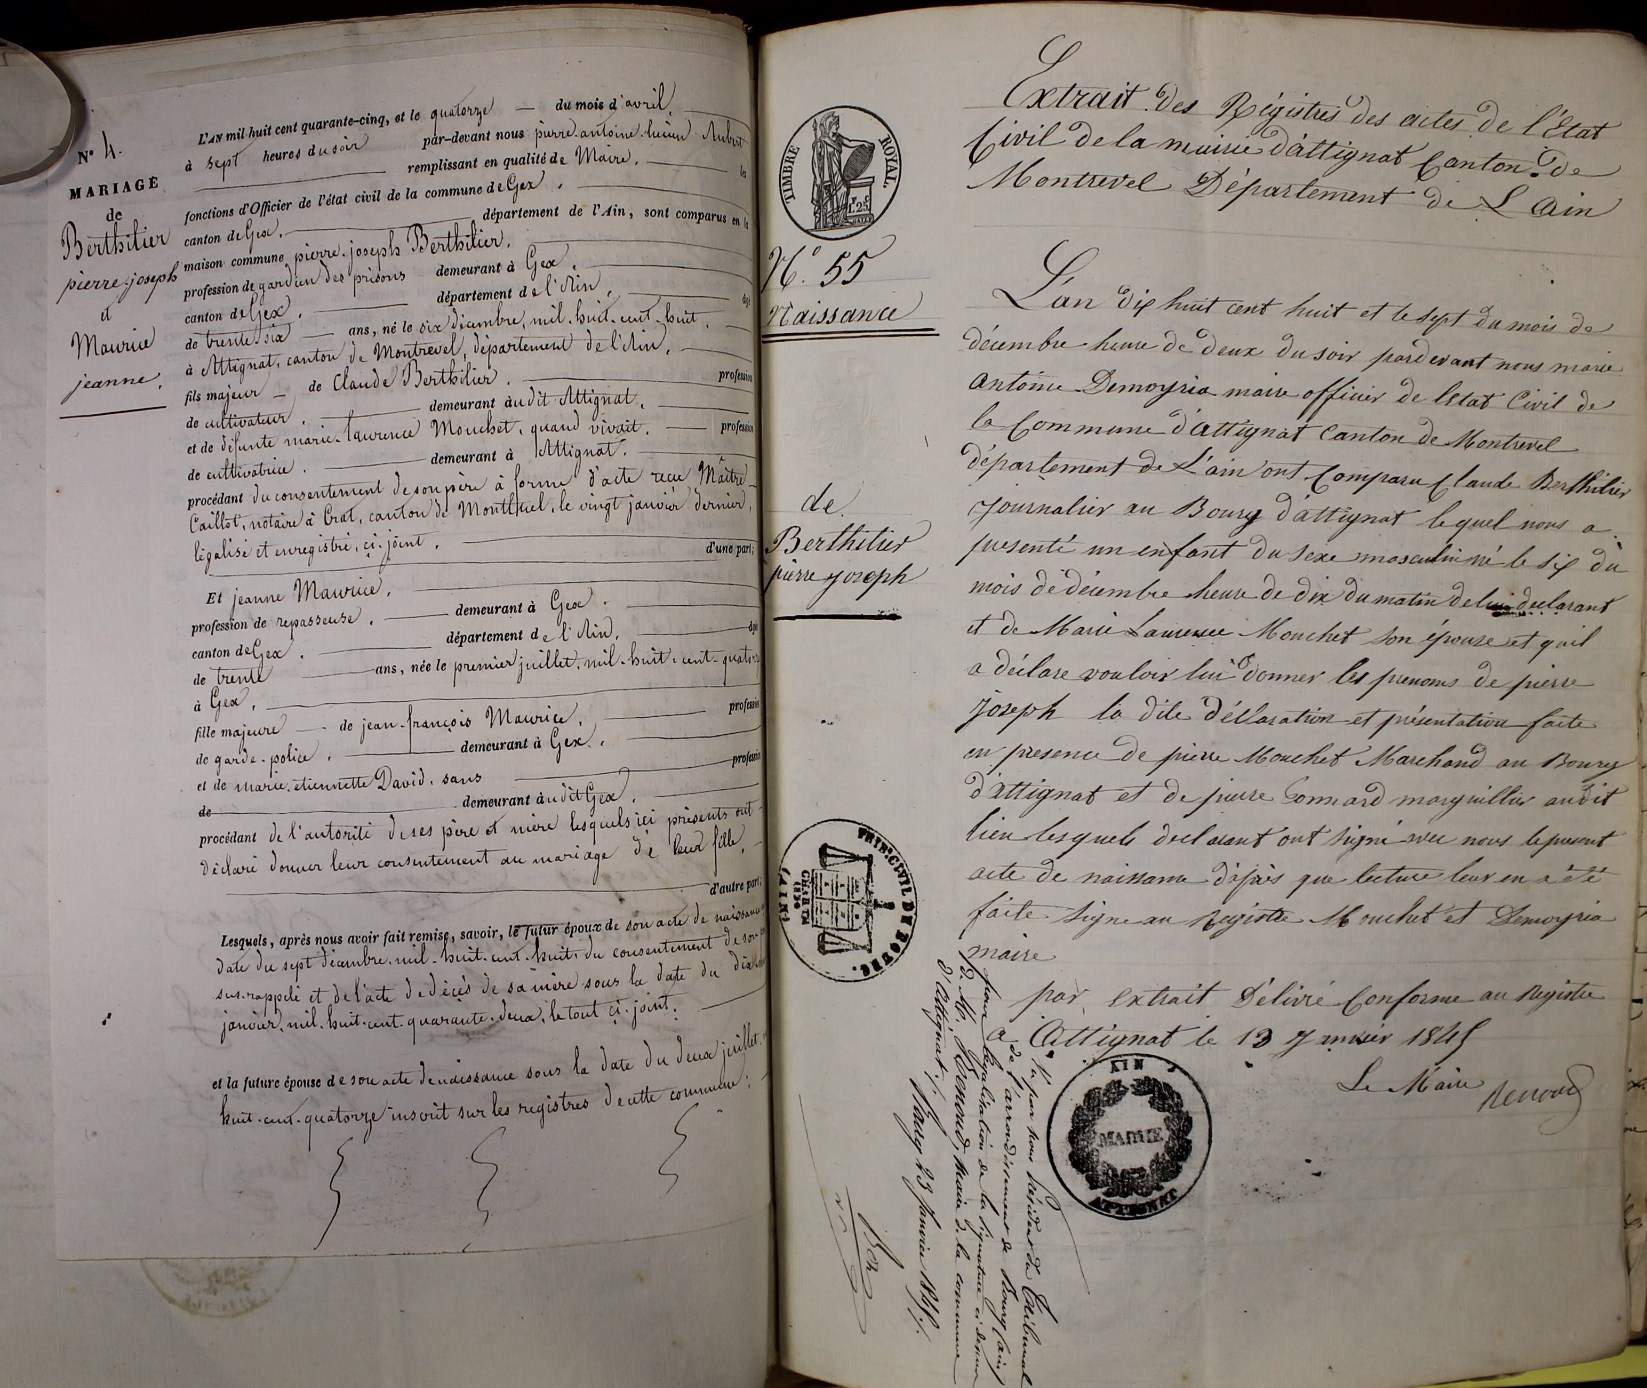 N° 4.
MARIAGE
de
Berthilier
pierre-joseph
et
Maurice
jeanne.
L'AN mil huit cent quarante-cinq, et le quatorze du mois d'avril
à sept heures du soir par-devant nous pierre-antoine-lucien Aubert
remplissant en qualité de Maire. les
fonctions d'Officier de l'état civil de la commune de Gex.
canton de Gex. département de l'Ain, sont comparus en la
maison commune pierre-joseph Berthilier.
profession de gardien des prisons demeurant à Gex.
canton de Gex. département de l'Ain. âgé
de trente-six ans, né le six décembre, mil-huit-cent-huit.
à Attignat, canton de Montrevel, département de l'Ain.
fils majeur de Claude Berthilier. profession
de cultivateur. demeurant à udit Attignat.
et de défunte marie-laurence Mouchet, quand vivait. profession
de cultivatrice. demeurant à Attignat.
procédant du consentement de son père à forme d'acte reçu Maître
Caillot, notaire à Crat, canton de Montluel, le vingt janvier dernier,
légalisé et enregistré, ci-joint. d'une part;
Et jeanne Maurice.
profession de repasseuse. demeurant à Gex.
canton de Gex. département de l'Ain. âgée
de trente ans, née le premier juillet, mil-huit-cent-quatorze
à Gex.
fille majeure de jean-françois Maurice. profession
de garde-police. demeurant à Gex.
et de marie-etiennette David. sans profession
de demeurant à udit Gex.
procédant de l'autorité de ses père et mère lesquels ici présents ont
déclaré donner leur consentement au mariage de leur fille.
d'autre part;
Lesquels, après nous avoir fait remise, savoir, le futur époux de son acte de naissance
date du sept décembre, mil-huit-cent-huit, du consentement de son
sus-rappelé et de l'acte de décès de sa mère sous la date du dix
janvier, mil-huit-cent-quarante-deux, le tout ci-joint.
et la future épouse de son acte de naissance sous la date du deux juillet
huit-cent-quatorze inscrit sur les registres de cette commune;
TIMBRE ROYAL
1F 25C
N° 55
Naissance
de
Berthilier
pierre joseph
TRIB. CIVIL DE BOURG
(AIN)
CHARTE
1830
Extrait des Régistres des actes de l'Etat
Civil de la mairie d'attignat Canton de
Montrevel Département de L'ain
L'an dix huit cent huit et le sept du mois de
décembre heure de deux du soir pardevant nous marie
antoine Demoyria maire officier de l'Etat Civil de
la Commune d'attignat Canton de Montrevel
département de L'ain ont Comparu Claude Berthilier
journalier au Bourg d'attignat lequel nous a
presenté un enfant du sexe masculin né le six du
mois de décembre heure de dix du matin de lui declarant
et de Marie Laurence Mouchet son épouse et qu'il
a déclare vouloir lui donner les prenoms de pierre
joseph la dite déclaration et présentation faite
en presence de pierre Mouchet Marchand au Bourg
d'attignat et de pierre Gonnard marguillier audit
lieu lesquels declarant ont signé avec nous le present
acte de naissance d'après que lecture leur en a été
faite signe au Registre Mouchet et Demoyria
maire
par extrait Délivré Conforme au Registre
a Attignat le 13 janvier 1845
Le Maire Renoud
AIN
MAIRIE
ATTIGNAT
Vu par nous président du Tribunal
de l'arrondissement de Bourg (ain)
pour légalisation de la signature ci dessus
de M. Renoud, maire de la commune
d'attignat.
Bourg 23 janvier 1845.